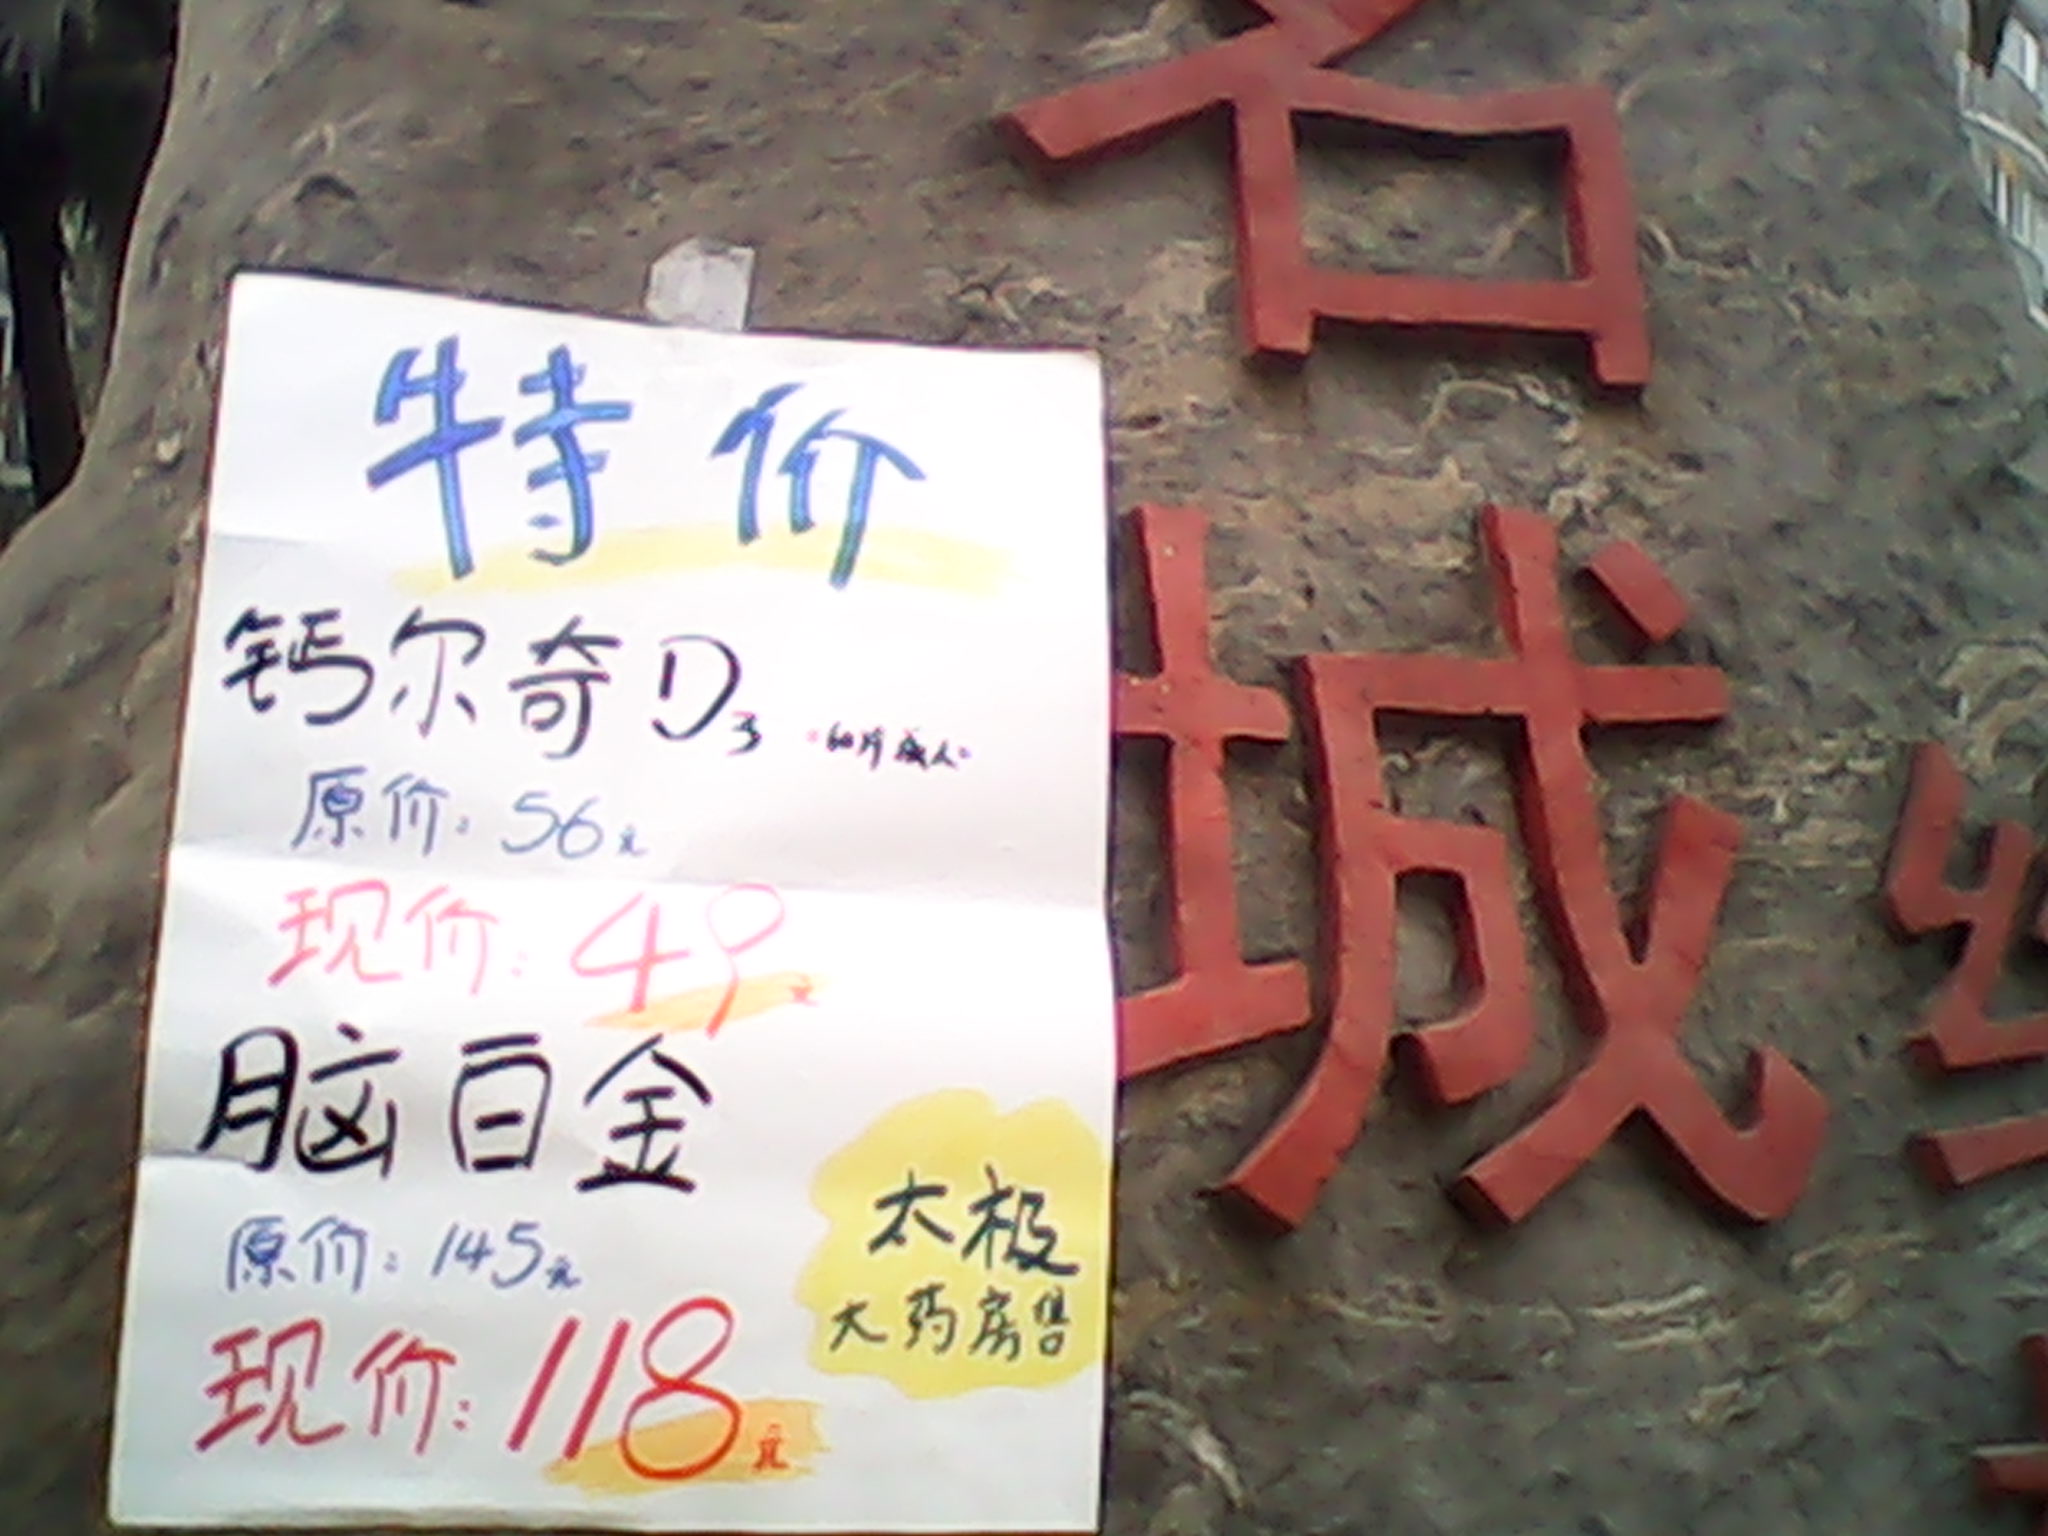 特价
钙尔奇D3 "60片成人"
原价:56元
现价:49元
脑白金
原价:145元
现价:118元
太极
大药房售
名
城